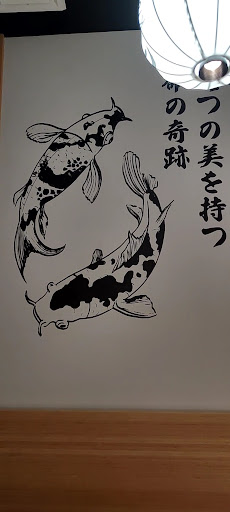 つの美を持つ
の奇跡